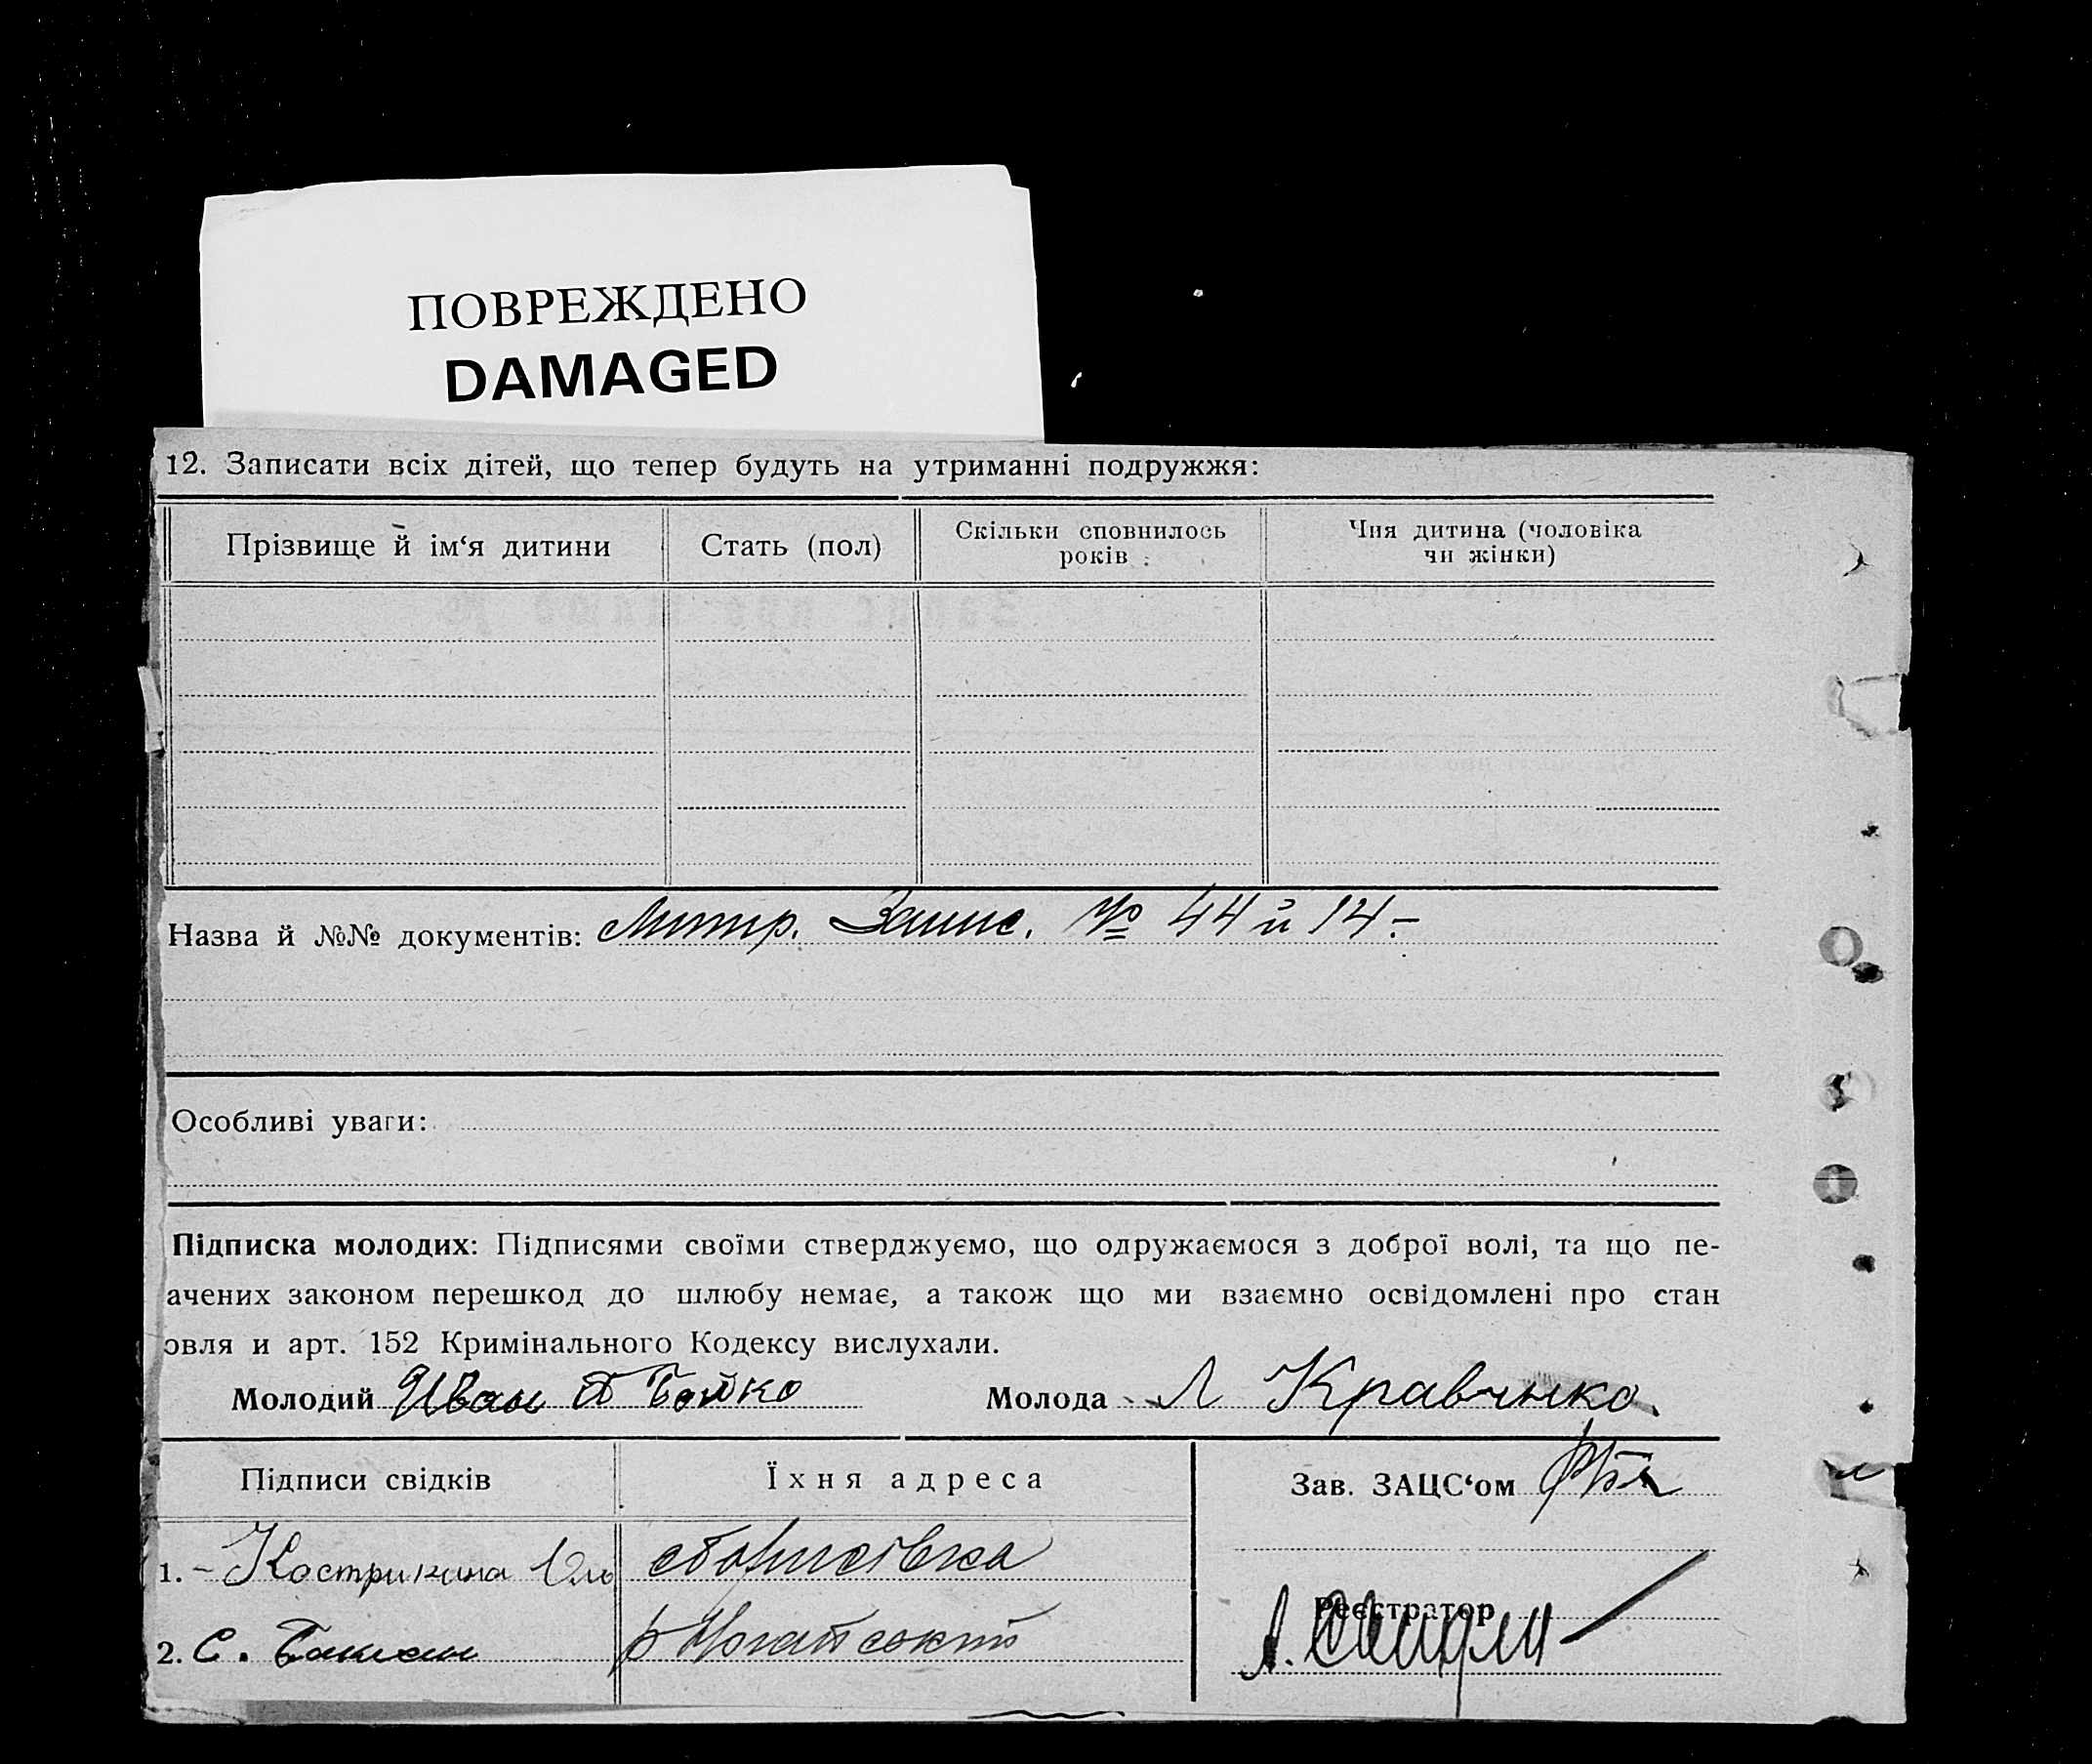 ПОВРЕЖДЕНО
DAMAGED
12. Записати всіх дітей, що тепер будуть на утриманні подружжя:
Прізвище й ім‘я дитини
Стать (пол)
Скільки сповнилось
років
Чия дитина (чоловіка
чи жінки)
Назва й №№ документів: Метр. Запис. № 44 й 14.-
Особливі уваги:
Підписка молодих: Підписями своїми стверджуємо, що одружаємося з доброї волі, та що пе-
ачених законом перешкод до шлюбу немає, а також що ми взаємно освідомлені про стан
овля и арт. 152 Кримінального Кодексу вислухали.
Молодий Иван Бойко
Молода Л Кравчнко
Підписи свідків
Їхня адреса
Зав. ЗАЦС‘ом
1. - Кострикина
Борисівка
Реєстратор
2. С.